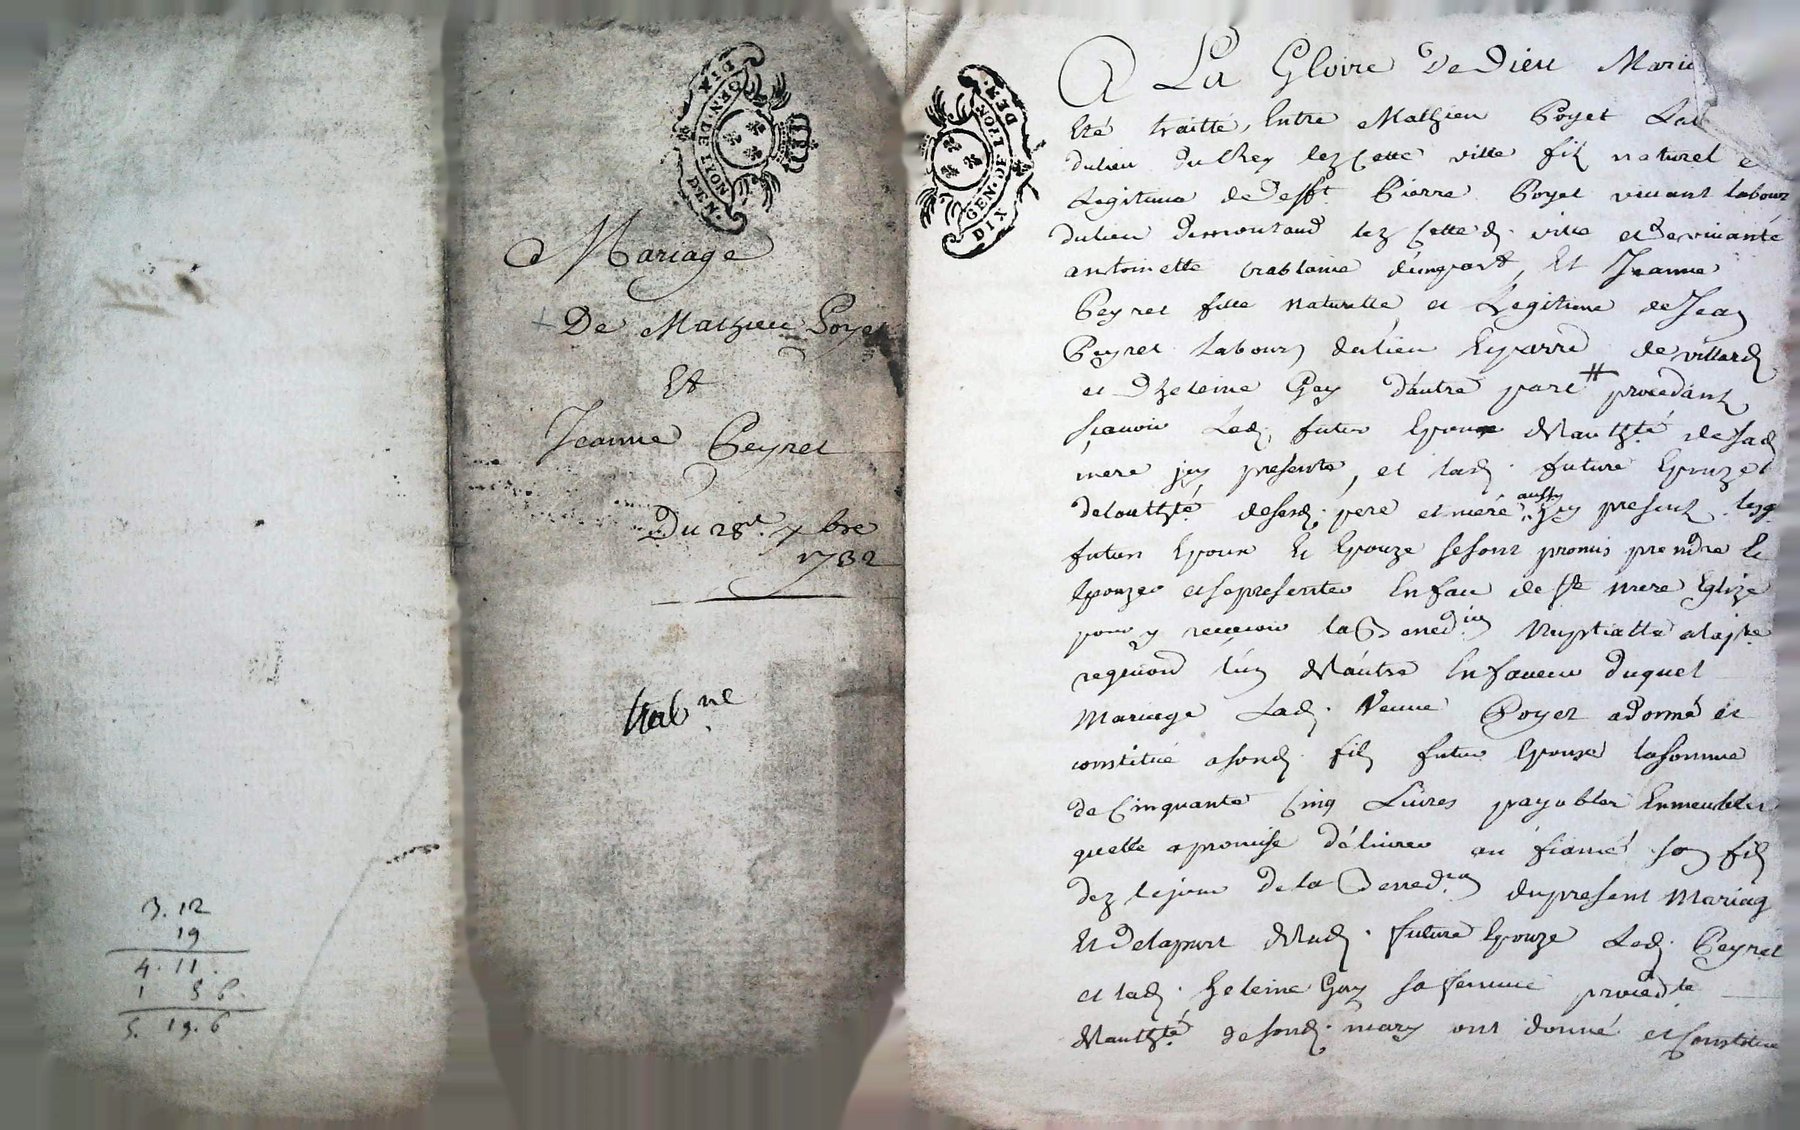 3. 12
19
4. 11.
1 5 6.
5. 19. 6
GEN. DE LYON
DIX DEN.
Mariage
De Mathieu Poyet
Et
Jeanne Peyret
Du 28e. 7bre
1732
GEN. DE LYON
DIX DEN.
A La Gloire de Dieu Mari
Eté traitté, Entre Mathieu Poyet Lab
dulieu du lez cette ville fils naturel e
Legitime de defft. Pierre Poyet vivant labour
dulieu lez cette d. ville et de vivante
antoinette d'unepart, Et Jeanne
Peyret fille naturelle et Legitime de Jean
Peyret Labourr dulieu de villards
et d'heleine Gay d'autre part # procedants
sçavoir Led. futur Epoux de l'authté de sad.
mere jcy presente, et lad. future Epouze
de l'authté desesd. pere et mere aussy jcy presents lesq.
futurs Epoux Et Epouze se sont promis prendre Et
Epouzer et se presenter En face de Ste mere Eglize
pour y recevoir la Benedion Nuptialle a la pre
requion l'un de l'autre En faveur duquel
Mariage Lad. Veuve Poyet a donné et
constitué a sond. fils futur Epoux la somme
de Cinquante Cinq Livres payables En meubles
quelle a promise délivrer au fiancé son fils
dez le jour de la Benedion du present Mariag
Et de la part de lad. future Epouze Led. Peyret
et lad. heleine Gay sa femme procedte
de l'authté de sond. mary ont donné et Constitué